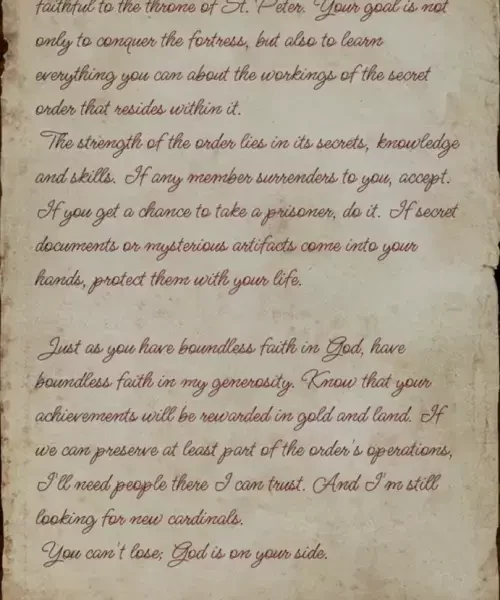 faithful to the throne of St. Peter. Your goal is not
only to conquer the fortress, but also to learn
everything you can about the workings of the secret
order that resides within it.
The strength of the order lies in its secrets, knowledge
and skills. If any member surrenders to you, accept.
If you get a chance to take a prisoner, do it. If secret
documents or mysterious artifacts come into your
hands, protect them with your life.
Just as you have boundless faith in God, have
boundless faith in my generosity. Know that your
achievements will be rewarded in gold and land. If
we can preserve at least part of the order's operations,
I'll need people there I can trust. And I'm still
looking for new cardinals.
You can't lose; God is on your side.